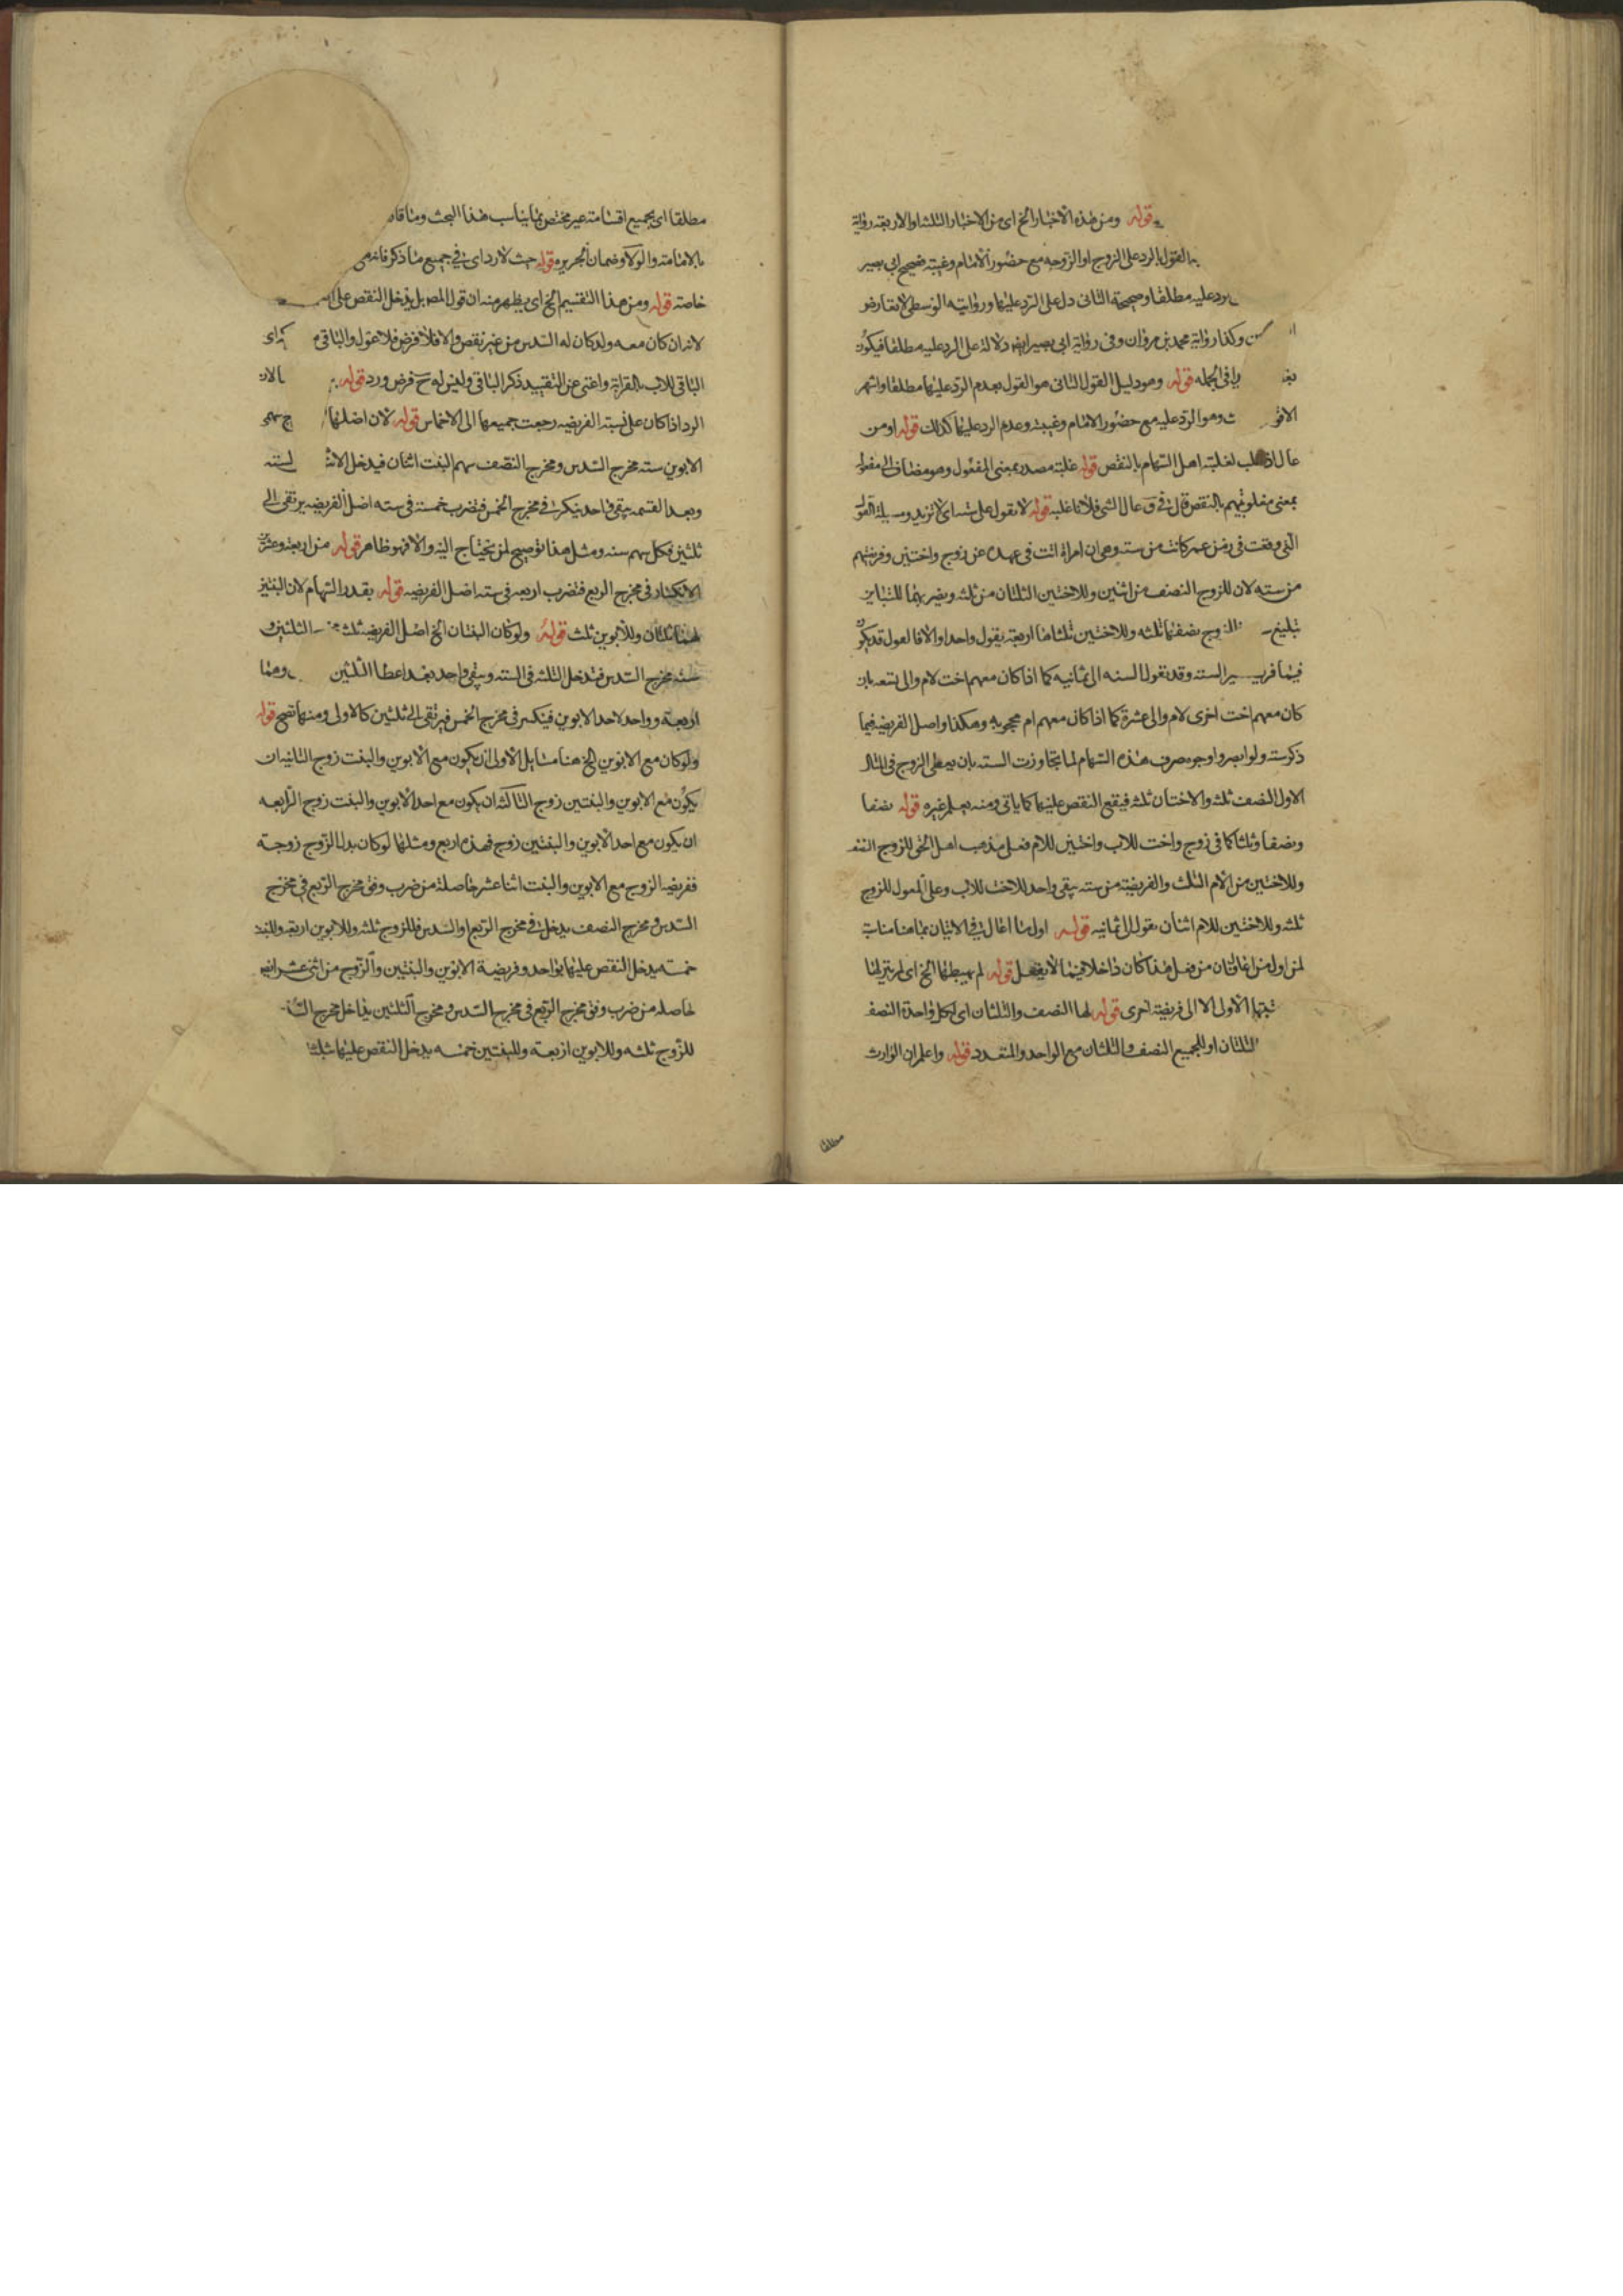 قوله ومن هذه الاخبار الخ اى من الاخبار الثلثة او الاربعة رواية
القول بالرد على الزوج او الزوجه مع حضور الامام وغيبته صحيح ابى بصير
يرد عليه مطلقا وصحيحة الثانى دل على الرد عليها وروايته الوسطى لا تعارض
وكذا رواية محمد بن مروان وفى رواية ابى بصير ايضا دلالة على الرد عليه مطلقا فيكون
فى الجمله قوله وهو دليل القول الثانى هو القول بعدم الرد عليها مطلقا واشهر
وهو الرد عليه مع حضور الامام وغيبته وعدم الرد عليها كذلك قوله او من
عال اذا غلب لغلبة اهل السهام بالنقص قوله غلبة مصدر بمعنى المفعول وهو مضاف الى مفعوله
بمعنى مغلوبيتهم بالنقص قال فى ق عال الشى فلانا غلبه قوله لا تعول على ستة اى لا تزيد ومسيلة العول
التى وقعت فى زمن عمر كانت من ستة وهى ان امراة اتت فى عهده عن زوج واختين وفريضتهم
من سته لان للزوج النصف من اثنين وللاختين الثلثان من ثلثه وضربهما للتباين
تبلغ الزوج نصفها ثلثه وللاختين ثلثاها اربعة يعول واحدا والا فالعول قد يكون
فيما فر غير السته وقد تعول السته الى ثمانيه كما اذا كان معهم اخت لام والى تسعه بان
كان معهم اخت اخرى لام والى عشرة كما اذا كان معهم ام محجوبه وهكذا واصل الفريضه فيما
ذكر سته ولو ابصروا وجوه صرف هذه السهام لما تجاوزت السته بان يعطى الزوج فى المثال
الاول النصف ثلثه والاختان ثلثه فيقع النقص عليهما كما ياتى ومنه يعلم غيره قوله نصفا
ونصفا وثلثا كما فى زوج واخت للاب واختين للام فعلى مذهب اهل الحق للزوج النصف
وللاختين من الام الثلث والفريضة من سته يبقى واحد للاخت للاب وعلى العول للزوج
ثلثه وللاختين للام اثنان يعول الى ثمانيه قوله اول من اعال فى الاتيان بما هنا مناسبة
لمن اول من اعال فان من فعل هذا كان داخلا فيما لا يفعل قوله لم يهبطها الخ اى لم ينزلها
الاولى الا الى فريضة اخرى قوله لها النصف والثلثان اى لكل واحدة النصف
الثلثان او للجميع النصف والثلثان مع الواحد والمتعدد قوله واعلم ان الوارث
مطلقا
مطلقا اى بجميع اقسامه غير مختص بما يناسب هذا البحث
بالامامة والولاء وضمان الجريرة قوله حيث لا رد اى فى جميع ما ذكر فانه
خاصة قوله ومن هذا التقسيم الخ اى يظهر منه ان قول المص بل يدخل النقص على
لانه ان كان معه ولد كان له السدس من غير نقص والا فلا فرض فلا عول والباقى
الباقى للاب بالقرابة واغنى عن التقييد ذكر الباقى وليس له ح فرض ورد قوله
الرد اذا كان على نسبة الفريضه رجعت جميعها الى الاخماس قوله لان اصلها
الابوين سته مخرج السدس ومخرج النصف سهم البنت اثنان فيدخل الاثنا الستة
وبعد القسمه يبقى واحد ينكسر فى مخرج الخمس فتضرب خمسة فى سته اصل الفريضه يرتقى الى
ثلثين فكل سهم سته ومثل هذا توضيح لمن يحتاج اليه والا فهو ظاهر قوله من اربعة وعشرين
الانكسار فى مخرج الربع فتضرب اربعه فى سته اصل الفريضه قوله بقدر السهام لان البنتين
لهما ثلثان وللابوين ثلث قوله ولو كان البنتان الخ اصل الفريضه ثلثه الثلثين و
سته مخرج السدس فتدخل الثلثه فى السته ويبقى واحد بعد اعطا الثلثين وهما
اربعة وواحد لاحد الابوين فينكسر فى مخرج الخمس فيرتقى الى ثلثين كالاولى ومنها تصح قوله
ولو كان مع الابوين الخ هنا مسايل الاولى ان يكون مع الابوين والبنت زوج الثانيه ان
يكون مع الابوين والبنتين زوج الثالثة ان يكون مع احد الابوين والبنت زوج الرابعه
ان يكون مع احد الابوين والبنتين زوج فهذه اربع ومثلها لو كان بدل الزوج زوجة
ففريضة الزوج مع الابوين والبنت اثنا عشر حاصلة من ضرب وفق مخرج الربع فى مخرج
السدس ومخرج النصف يدخل فى مخرج الربع او السدس فللزوج ثلثه وللابوين اربعة وللبنت
خمسة يدخل النقص عليها بواحد وفريضة الابوين والبنتين والزوج من اثنى عشر ايضا
حاصله من ضرب وفق مخرج الربع فى مخرج السدس ومخرج الثلثين يداخل مخرج
للزوج ثلثه وللابوين اربعة وللبنتين خمسه يدخل النقص عليهما بثلثة